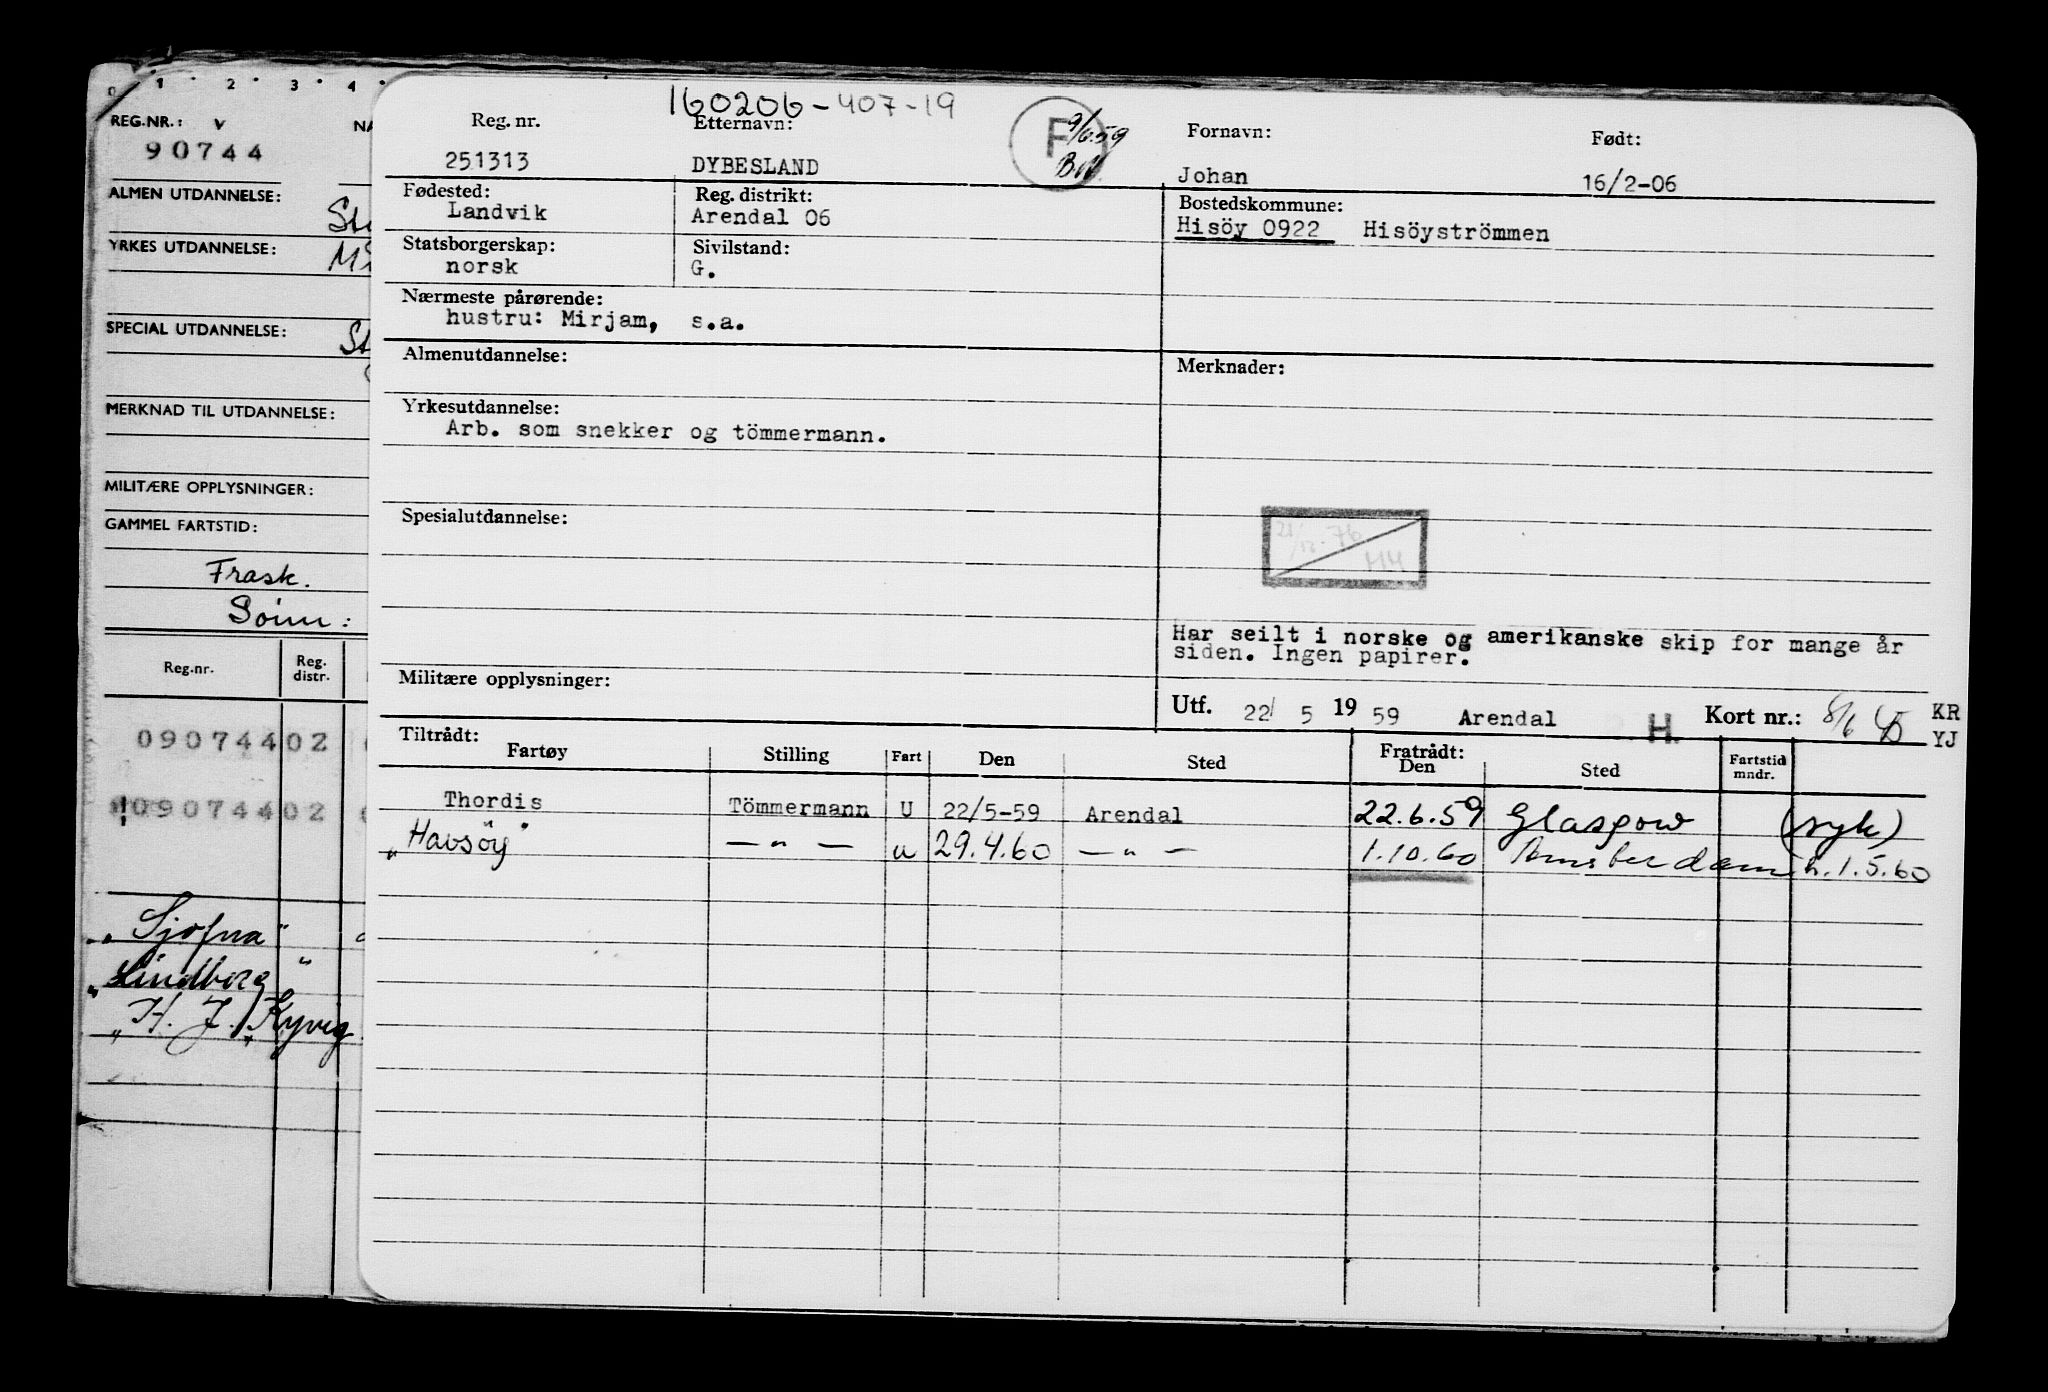 0 1 2 3 4
REG.NR.: v
NA
90744
ALMEN UTDANNELSE:
YRKES UTDANNELSE:
SPECIAL UTDANNELSE:
MERKNAD TIL UTDANNELSE:
MILITÆRE OPPLYSNINGER:
GAMMEL FARTSTID:
Frask.
Reg.nr. Reg. distr.
09074402
09074402
"Sjofna"
"Lindborg"
"H. J. Kyvig
160206-407-19
Reg. nr. Etternavn: Fornavn: Født:
F 9/6.59
251313 DYBESLAND Johan 16/2-06
Fødested: Reg. distrikt: Bostedskommune:
Landvik Arendal 06 Hisöy 0922 Hisöyströmmen
Statsborgerskap: Sivilstand:
norsk G.
Nærmeste pårørende:
hustru: Mirjam, s.a.
Almenutdannelse: Merknader:
Yrkesutdannelse:
Arb. som snekker og tömmermann.
Spesialutdannelse:
Har seilt i norske og amerikanske skip for mange år
siden. Ingen papirer.
Militære opplysninger:
Utf. 22/ 5 1959 Arendal H. Kort nr.: 8/6 KR
YJ
Tiltrådt: Fratrådt: Fartstid
Fartøy Stilling Fart Den Sted Den Sted mndr.
Thordis Tömmermann U 22/5-59 Arendal 22.6.59 Glasgow (syk)
"Havsöy" — " — u 29.4.60 — " — 1.10.60 Amsterdam h.1.5.60